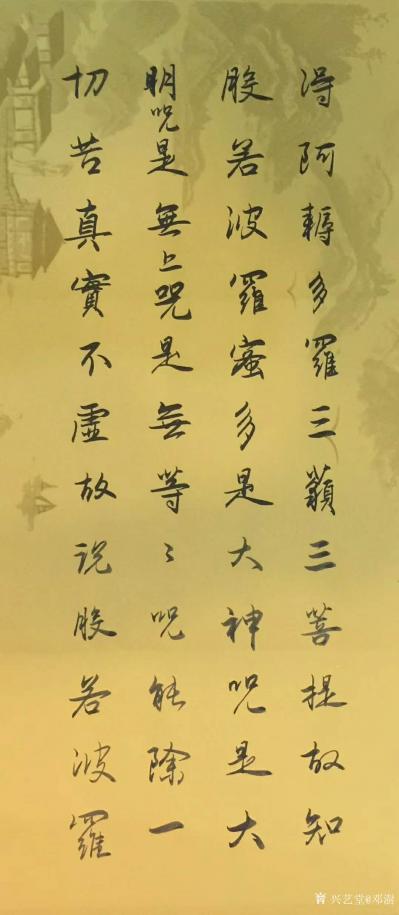 得阿耨多羅三藐三菩提故知
般若波羅蜜多是大神咒是大
明咒是無上咒是無等〻咒能除一
切苦真實不虛故说般若波羅
兴艺堂@邓澍